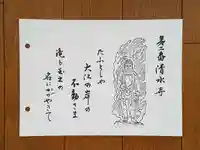 第二番清水寺
たふとしや
大江の岸の
不動さま
滝も至生の
名にかがやきて